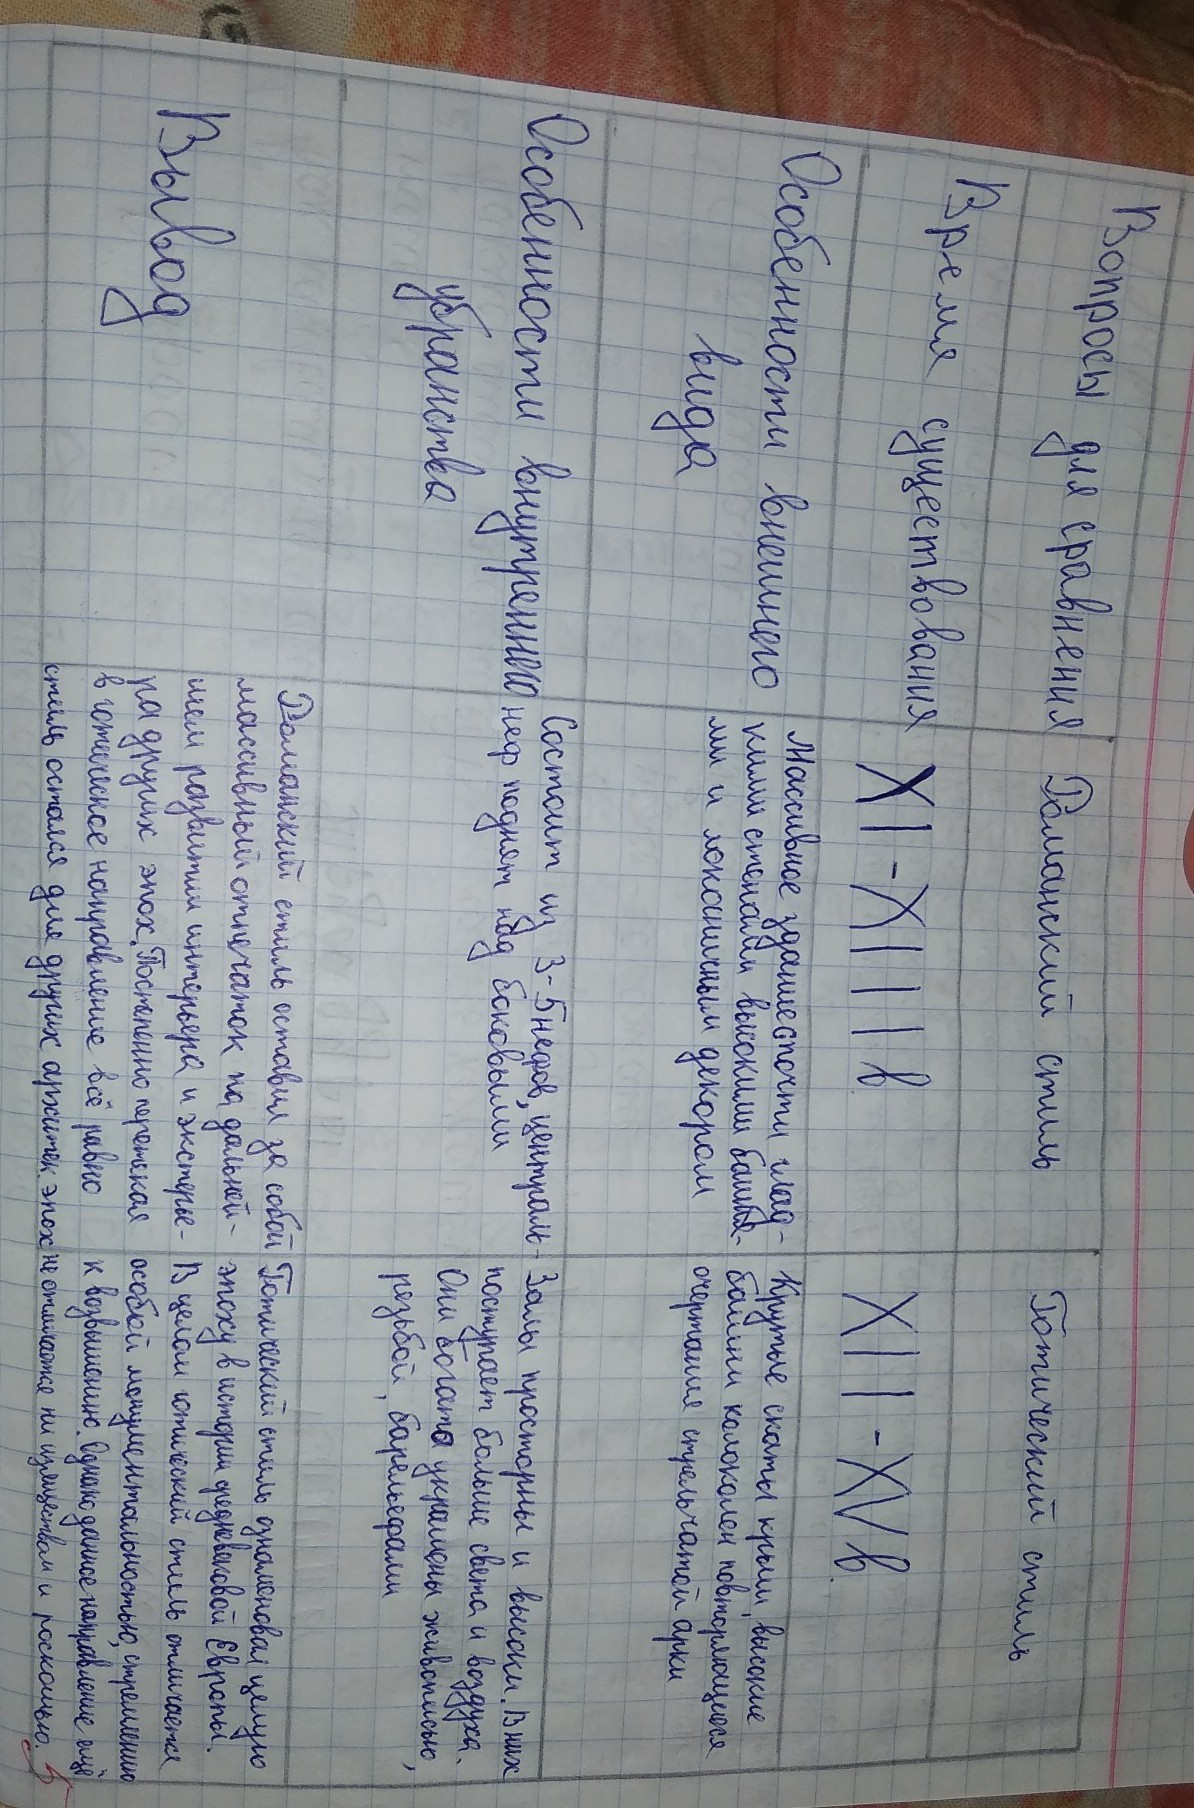 Вопросы для сравнения
Романский стиль
Готический стиль
Время существования
XI-XIII в
XII-XV в.
Особенности внешнего
вида
Массивное здание с почти глад-
кими стенами высокими башня-
ми и локаничным декором
Крутые скаты крыш, высокие
башни колоколен повторяющиеся
очертание стрельчатой арки
Особенности внутреннего
убранства
Состоит из 3-5 нефов, централь-
неф поднят над боковыми
Залы просторны и высоки. В них
поступает больше света и воздуха.
Они богата украшены живописью,
резьбой, барельефами
Вывод
Романский стиль оставил за собой
массивный отпечаток на дальней-
шем развитии интерьера и экстерье-
ра других эпох. Постепенно перетекая
в готическое направление всё равно
стиль остался для других архитек. эпох
Готический стиль ознаменовал целую
эпоху в истории средневековой Европы.
В целом готический стиль отличается
особой монументальностью, стремлению
к возвышению. Однако данное направление ещё
не отличается ни изяществом и роскошью.
5